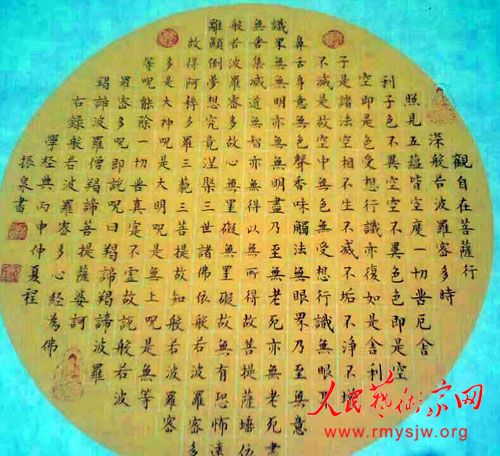 觀自在菩薩行
深般若波羅密多時
照見五蘊皆空度一切苦厄舍
利子色不異空空不異色色即是空
空即是色受想行識亦復如是舍利
子是諸法空相不生不滅不垢不淨不增
不減是故空中無色無受想行識無眼耳
鼻舌身意無色聲香味觸法無眼界乃至無意
識界無無明亦無無明盡乃至無老死亦無老死盡
無苦集滅道無智亦無得以無所得故菩提薩埵依
般若波羅密多故心無罣礙無罣礙故無有恐怖遠
離顛倒夢想究竟涅槃三世諸佛依般若波羅密多
故得阿耨多羅三藐三菩提故知般若波羅密
多是大神呪是大明呪是無上呪是無等
等呪能除一切苦真實不虛故說般若波
羅密多呪即說呪曰羯諦羯諦波羅
羯諦波羅僧羯諦菩提薩婆訶
右録般若波羅密多心經為佛
學經典丙申仲夏程
振泉書
人民藝術家网
www.rmysjw.org